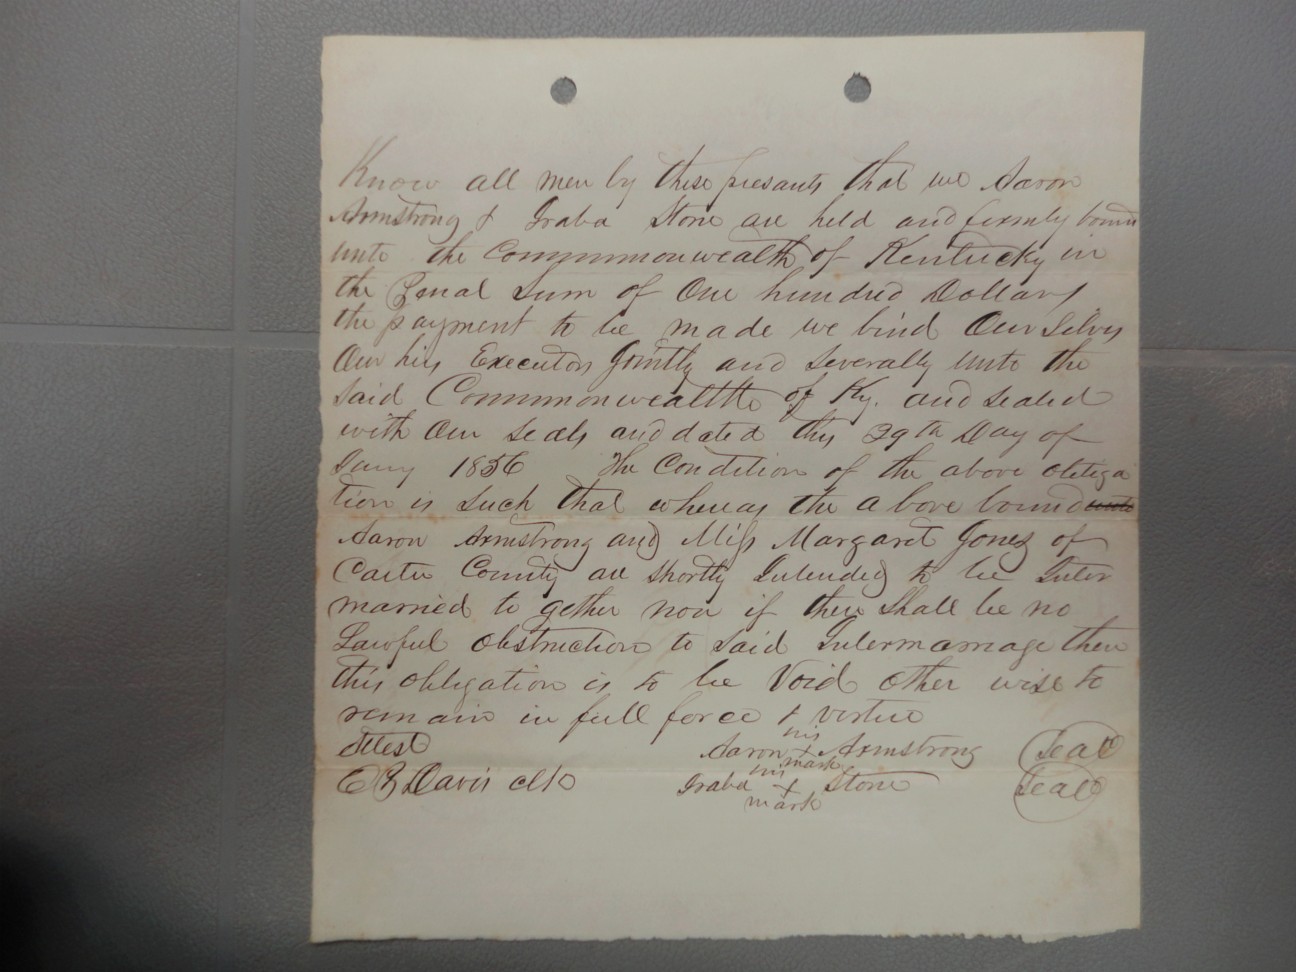 Know all men by these presants that we Aaron
Armstrong & Iraba Stone are held and firmly bound
unto the Commmonwealth of Kentucky in
the Penal Sum of One hundred Dollars
the payment to be made we bind Our Selves
Our heirs Executors Jointly and Severally unto the
said Commmonwealth of Ky. and sealed
with Our seals and dated this 29th Day of
Jany 1856 The Condition of the above obliga
tion is such that whereas the above bound
Aaron Armstrong and Miss Margaret Jones of
Carter County are shortly Intended to be Inter
married to gether now if there shall be no
Lawful obstruction to said Intermarriage then
this obligation is to be Void other wise to
remain in full force & virtue
Attest Aaron his x mark Armstrong Seal
E B Davis clk Iraba his x mark Stone Seal